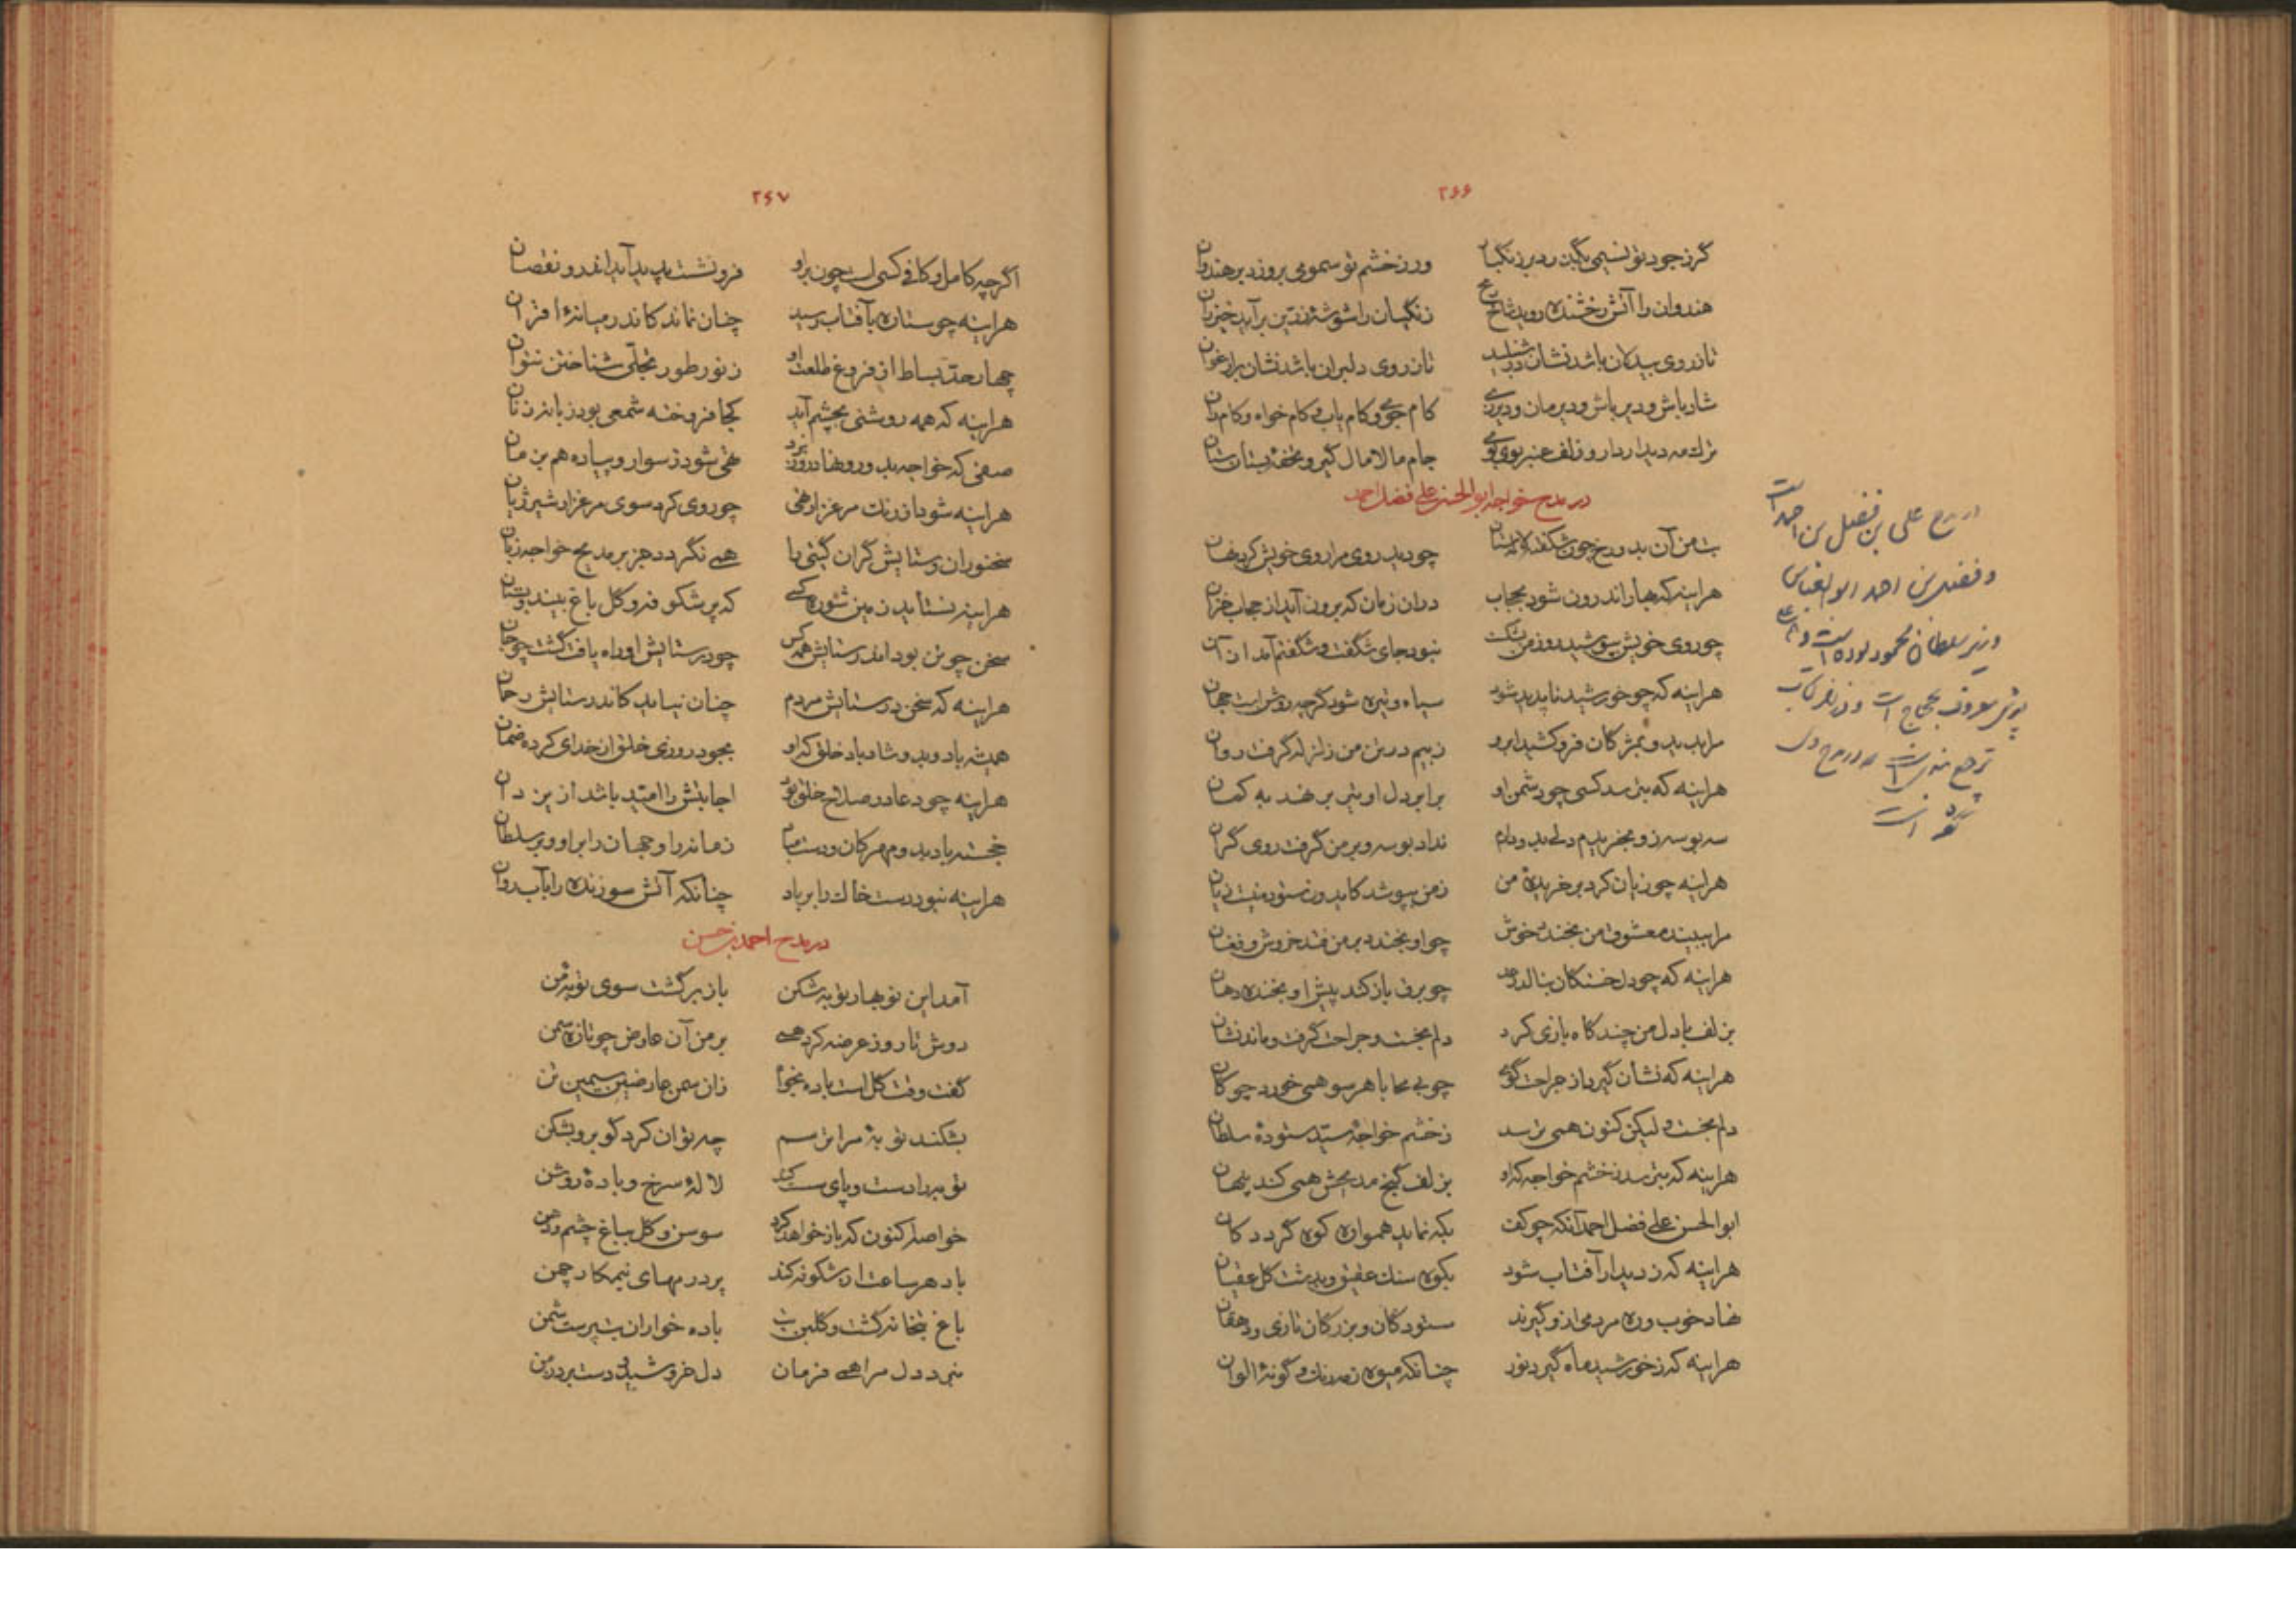 ۲۶۶
گر ز جود تو نسیمی بگذرد بر زنگبار ور ز خشم تو سمومی بروزد بر هندوان
هندوان را آتش رخشنده روید شاخ رمح زنگیان را شوشهٔ زرین برآید خیزران
تا ز روی بیدلان باشد نشان در شنبلید تا ز روی دلبران باشد نشان بر ارغوان
شاد باش و دیر باش و دیر مان و دیر زی کام جوی و کام یاب و کام خواه و کام ران
جام مالامال گیر و تحفهٔ بستان ستان
در مدح خواجه ابوالحسن علی فضل احمد
بت من آن بدو رخ چون شکفته لالستان چو دید روی مرا روی خویش کرد نهان
هراینه که بهار اندرون شود بحجاب دران زمان که برون آید از حجاب خزان
چو روی خویش بپوشید روز من بشکست نبود جای شگفت و شگفتم آمد ازان
هراینه که چو خورشید ناپدید شود سیاه و تیره شود گرچه روشن است جهان
مرا بدید و بمژگان فرو کشید ابرو ز بیم در تن من زلزله گرفت روان
هراینه که بترسد کسی چو دشمن او برابر دل او تیر بر نهد به کمان
سه بوسه زو بخریدم دلی بدو دادم نداد بوسه و بر من گرفت روی گران
هراینه چو زیان کرد بر خریدهٔ من ز من بپوشد کاید ورا ستوده نیست زیان
مرا ببیند معشوق من بخندد خوش چو او بخندد بر من فتد خروش و فغان
هراینه که چو دلخستگان بنالد رعد چو برق باز کند پیش او بخنده دهان
بزلف با دل من چند گاه بازی کرد دلم بخست و جراحت گرفت و ماند نشان
هراینه که نشان گیرد از جراحت گوی چو بی محابا هر سو همی خورد چوگان
دلم بخست و لیکن کنون همی ترسد ز خشم خواجهٔ سید ستودهٔ سلطان
هراینه که بترسد ز خشم خواجه که او بزلف گنج مدیحش همی کند پنهان
ابوالحسن علی فضل احمد آنکه چو کف بکه نماید هموار کوه گردد کان
هراینه که ز دیدار آفتاب شود بکوه سنگ عقیق و بدشت گل عقیان
نهاد خوب وره مردمی ازو گیرند ستودگان و بزرگان تازی و دهقان
هراینه که ز خورشید ماه گیرد نور چنانکه میوه ز مه رنگ و گونهٔ الوان
در مدح علی بن فضل بن احمد است
و فضل بن احمد ابوالعباس
وزیر سلطان محمود بوده است و علی
پسرش معروف بحجاج است
۲۶۷
اگرچه کامل و کافی کسی است چون بر او فرو نشست پدید آید اندرو نقصان
هراینه چو ستاره بآفتاب رسید چنان نماند کاندر میانهٔ اقران
چهار حد بساط از فروغ طلعت او ز نور طور تجلی شناختن نتوان
هراینه که همه روشنی بچشم آید کجا فروخته شمعی بود زبانه زنان
صفی که خواجه بدو رو نهاد روز نبرد تهی شود ز سوار و پیاده هم بزمان
هراینه شود از رنگ مرغزار تهی چو روی کرد سوی مرغزار شیر ژیان
سخنوران و ستایش گران گیتی را همی نگردد جز بر مدیح خواجه زبان
هراینه نستاید زمین شوره کسی که پر شکوفه و گل باغ بیند و بستان
سخن چو تن بود اندر ستایش همه کس چو در ستایش او راه یافت گشت چو جان
هراینه که سخن در ستایش مردم چنان نیاید کاندر ستایش رحمان
همیشه باد و بدو شاد باد خلق که او بجود روزی خلق از خدای کرده ضمان
هراینه چو دعا در صلاح خلق بود اجابتش را امید باشد از یزدان
خجسته بادبدو مهرگان و دست مباد زمانه را و جهان را براو و بر سلطان
هراینه نبود دست خاک را بر باد چنانکه آتش سوزنده را بآب روان
در مدح احمد بن حسن
آمد این نوبهار توبه شکن بازبرگشت سوی توبهٔ من
دوش تا روز عرضه کرد همی بر من آن عارض چو تازه سمن
گفت وقت گل است باده بخواه زان سمن عارضین سیمین تن
بشکند توبهٔ مرا ترسم چه توان کرد گو برو بشکن
توبه را دست و پای سست کند لالهٔ سرخ و بادهٔ روشن
خواصه کنون که باز خواهد کرد سوسن و گل بباغ چشم و دهن
باد هر ساعت از شکوفه کند پر درمهای نیمکار چمن
باغ بتخانه گشت و گلبن بت باده خواران بت پرست شمن
نبرد دل مرا همی فرمان دل خروشید و دست برد ز من